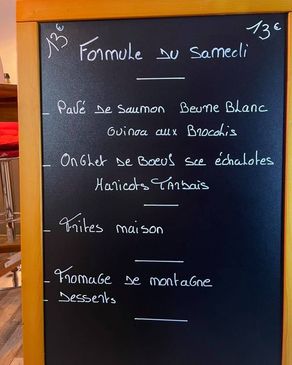 13€ 13€
Formule du Samedi
- Pavé de saumon Beurre Blanc
Quinoa aux Brocolis
- Onglet de Boeuf sce échalotes
Haricots Tarbais
- Frites maison
- Fromage de montagne
- Desserts